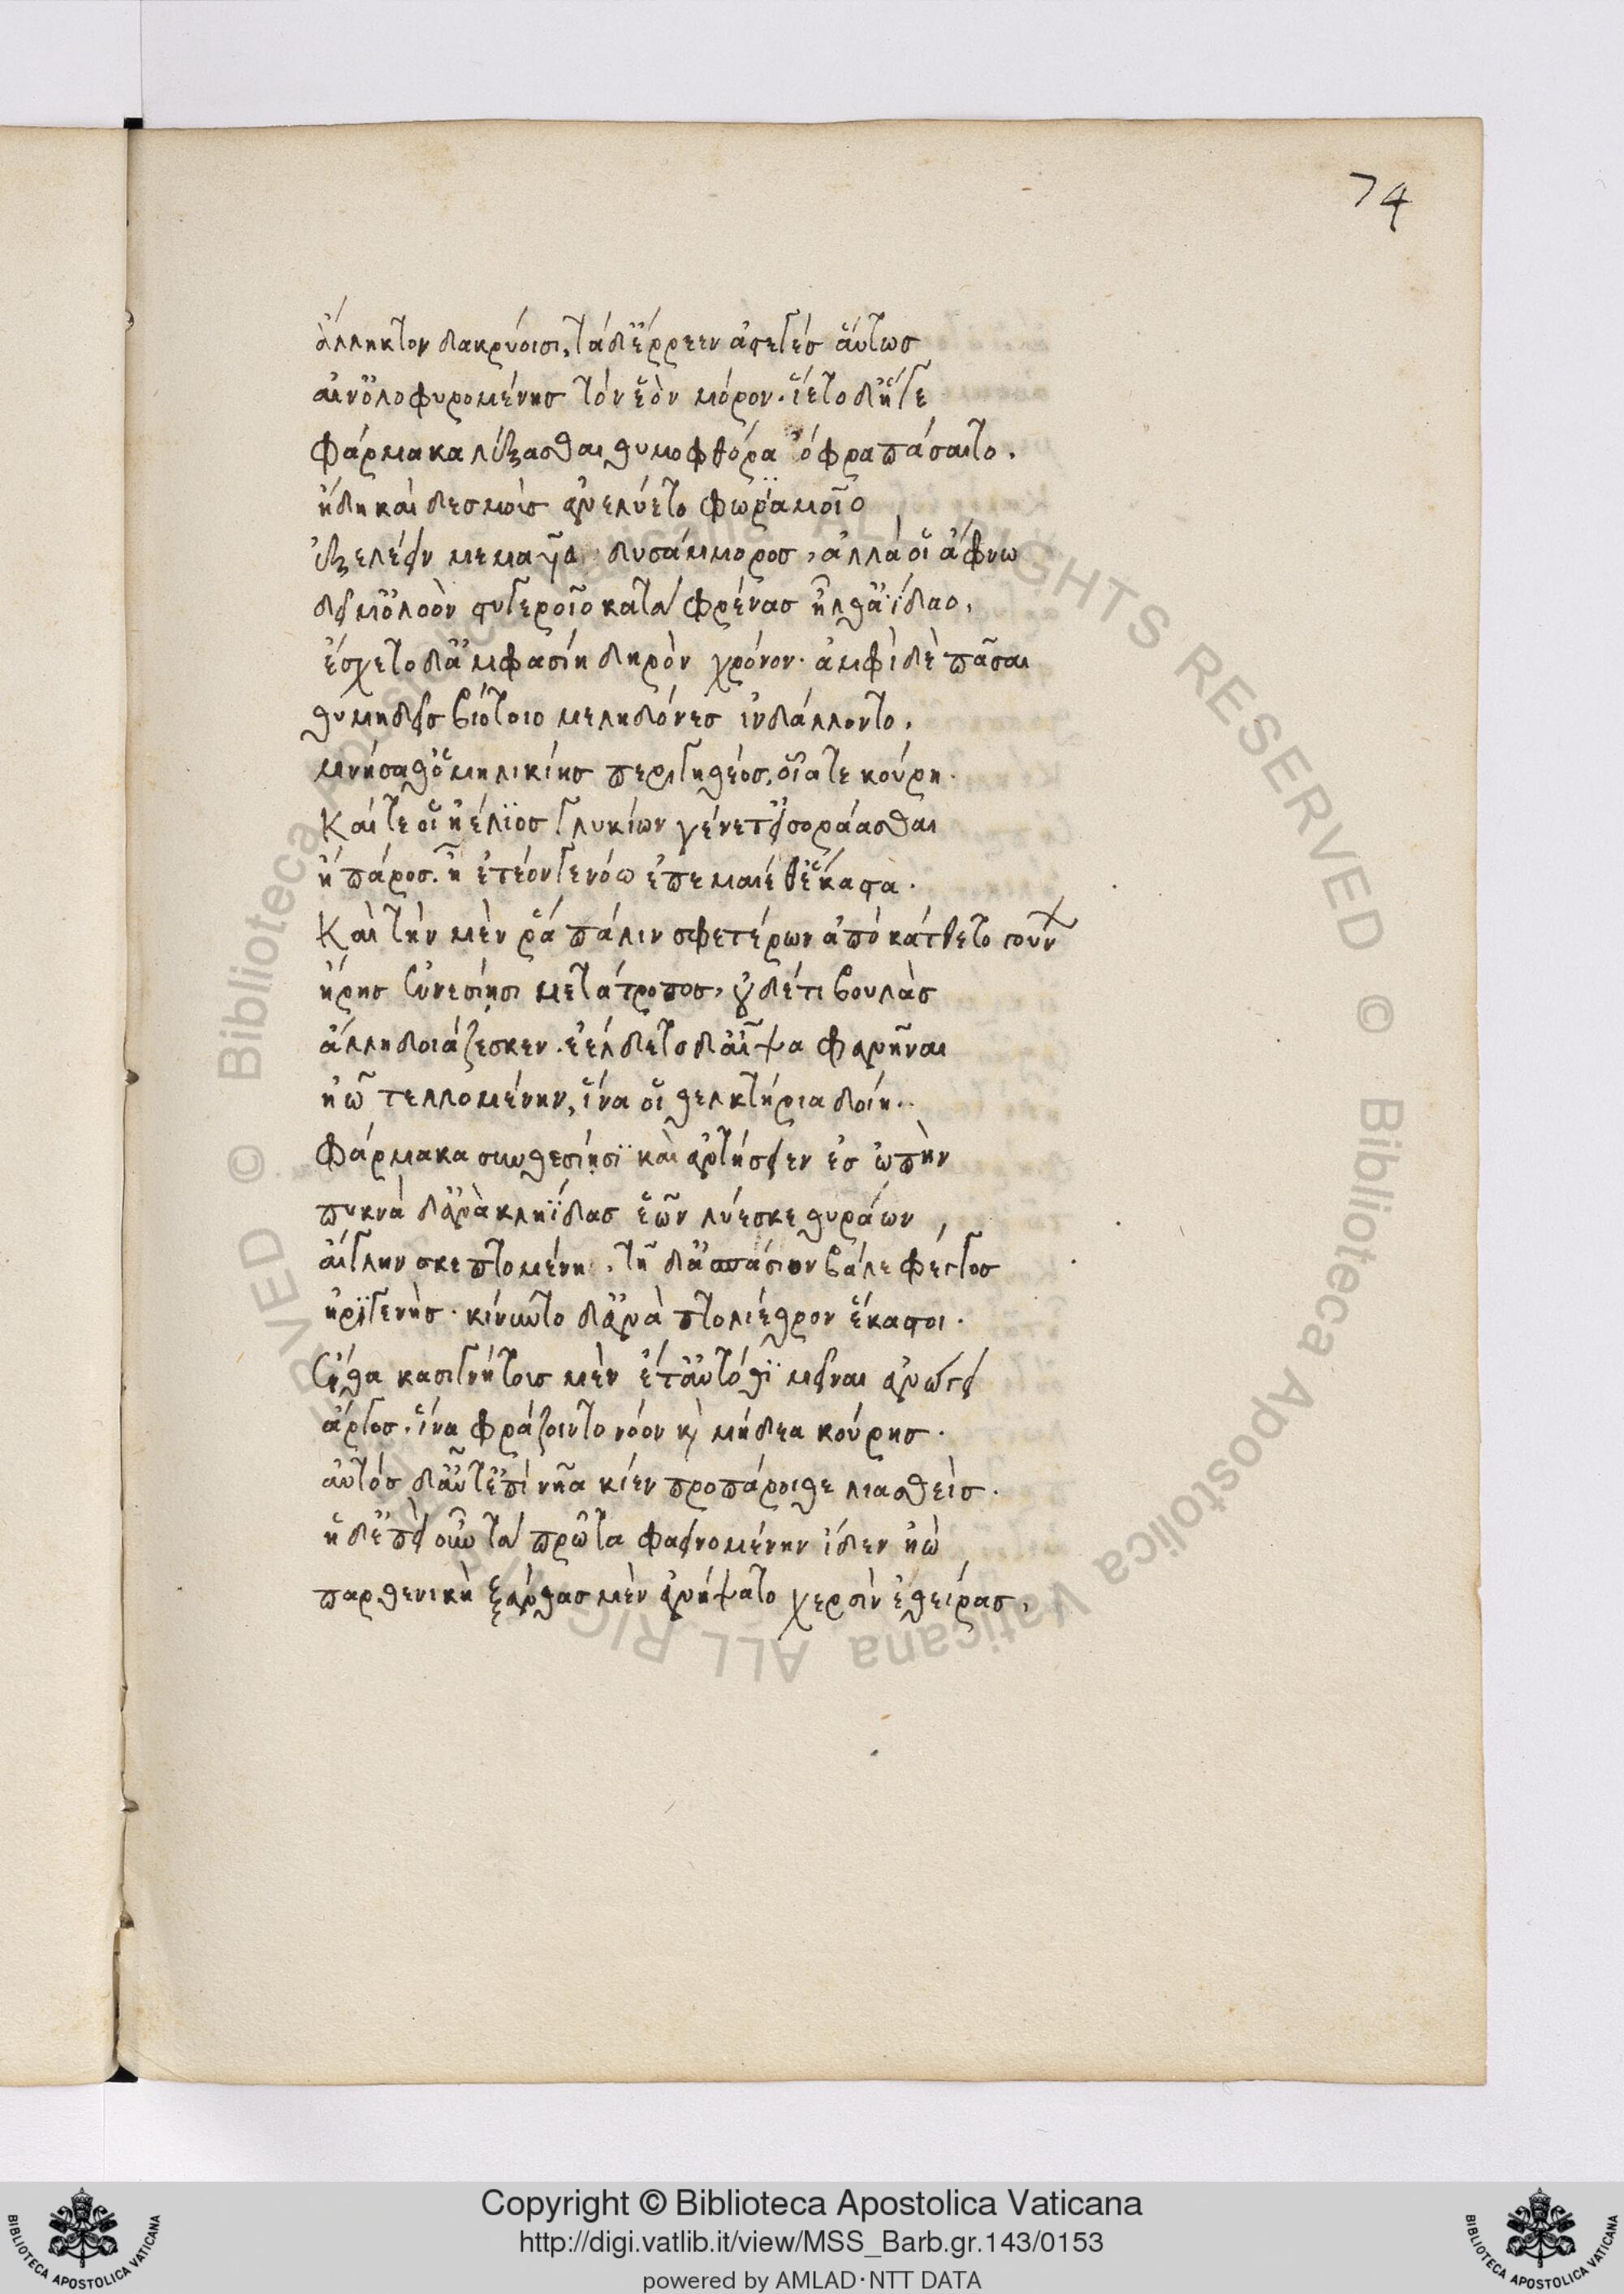 74
ἄλληκτον δακρύοισι, τὰ δ' ἔρρεεν ἀστεγὲς αὔτως
αἴν' ὀλοφυρομένης τὸν ἑὸν μόρον. ἵετο δ' ἥγε
φάρμακα λέξασθαι θυμοφθόρα ὄφρα πάσαιτο.
ἤδη καὶ δεσμοὺς ἀνελύετο φωραμοῖο
ἐξελέειν μεμαυῖα, δυσάμμορος, ἀλλά οἱ ἄφνω
δεῖμ' ὀλοὸν στυγεροῖο κατὰ φρένας ἦλθ' ἀΐδαο,
ἔσχετο δ' ἀμφασίη δηρὸν χρόνον. ἀμφὶ δὲ πᾶσαι
θυμηδεῖς βιότοιο μεληδόνες ἰνδάλλοντο.
μνήσαθ' ὁμηλικίης περιγηθέος, οἷά τε κούρη.
Καί τέ οἱ ἠέλϊος γλυκίων γένετ' εἰσοράασθαι
ἢ πάρος. ἦ ἐτεὸν γε νόω ἐπεμαίεθ' ἕκαστα.
Καὶ τὴν μὲν ῥά πάλιν σφετέρων ἀπὸ κάτθετο γουν
ἥρης ἐννεσίησι μετάτροπος, οὐδέτι βουλὰς
ἄλλη δοιάζεσκεν. ἐέλδετο δ' αἶψα φανῆναι
ἠῶ τελλομένην, ἵνα οἱ θελκτήρια δοίη.
Φάρμακα συνθεσίησϊ καὶ ἀντήσειεν ἐς ὠπὴν
πυκνὰ δ' ἀνὰ κληΐδας ἑῶν λύεσκε θυράων,
αἴγλην σκεπτομένη. τῆ δ' ἀσπάσιον βάλε φέγγος
ἠρϊγενὴς. κίνυντο δ' ἀνὰ πτολίεθρον ἕκαστοι.
Ἔνθα κασιγνήτοις μὲν ἔτ' αὐτόθϊ μεῖναι ἀνώγει
ἄργος. ἵνα φράζοιντο νόον κὶ μήδεα κούρης.
αὐτὸς δ' αὖτ' ἐπὶ νῆα κίεν προπάροιθε λιασθείς.
ἡ δ' ἐπεὶ οὖν τὰ πρῶτα φαεινομένην ἴδεν ἠὼ
παρθενικὴ ξανθὰς μὲν ἀνήψατο χερσὶν ἐθείρας,
Copyright © Biblioteca Apostolica Vaticana
http://digi.vatlib.it/view/MSS_Barb.gr.143/0153
powered by AMLAD·NTT DATA